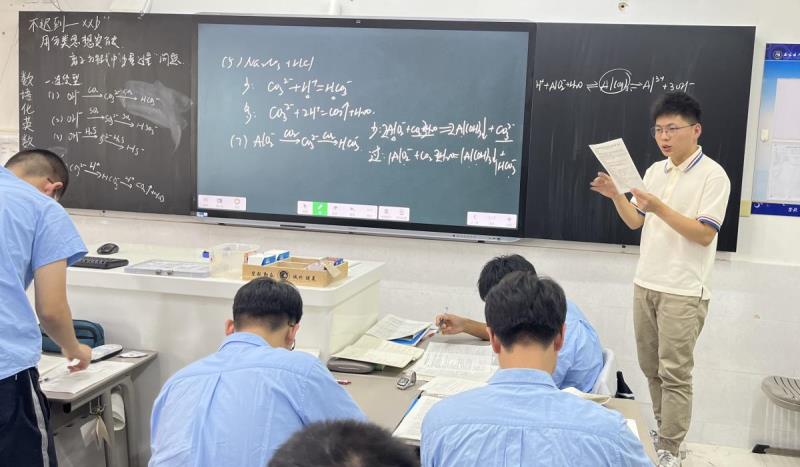 不迟到——xxb
用分类思想突破
离子方程式中"少量过量"问题.
一.连续型
(1) OH⁻ —CO₂→ CO₃²⁻ —CO₂→ HCO₃⁻
(2) OH⁻ —SO₂→ SO₃²⁻ —SO₂→ HSO₃⁻
(3) OH⁻ —H₂S→ S²⁻ —H₂S→ HS⁻
CO₃²⁻ —H⁺→ HCO₃⁻ —H⁺→ CO₂↑+H₂O
数
语
化
英
数
少: CO₃²⁻ + H⁺ = HCO₃⁻
多: CO₃²⁻ + 2H⁺ = CO₂↑+H₂O.
(7) AlO₂⁻ —CO₂→ CO₃²⁻ —CO₂→ HCO₃⁻
少: 2AlO₂⁻ + CO₂ + 3H₂O = 2Al(OH)₃↓ + CO₃²⁻
过: AlO₂⁻ + CO₂ + 2H₂O = Al(OH)₃↓ + HCO₃⁻
H⁺ + AlO₂⁻ + H₂O ⇌ Al(OH)₃ ⇌ Al³⁺ + 3OH⁻